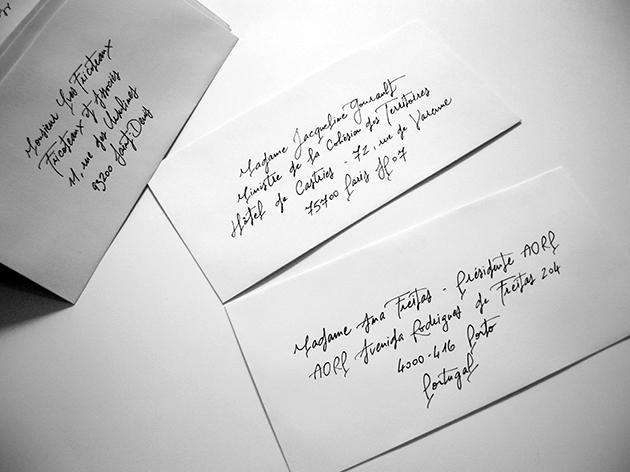 Monsieur Yves Tricoteaux
Tricoteaux & Associés
11, rue des Ursulines
93200 Saint-Denis
Madame Jacqueline Gourault
Ministre de la Cohésion des Territoires
Hôtel de Castries - 72, rue de Varenne
75700 Paris SP 07
Madame Ana Freitas - Présidente AORP
AORP Avenida Rodrigues de Freitas 204
4000-416 Porto
Portugal